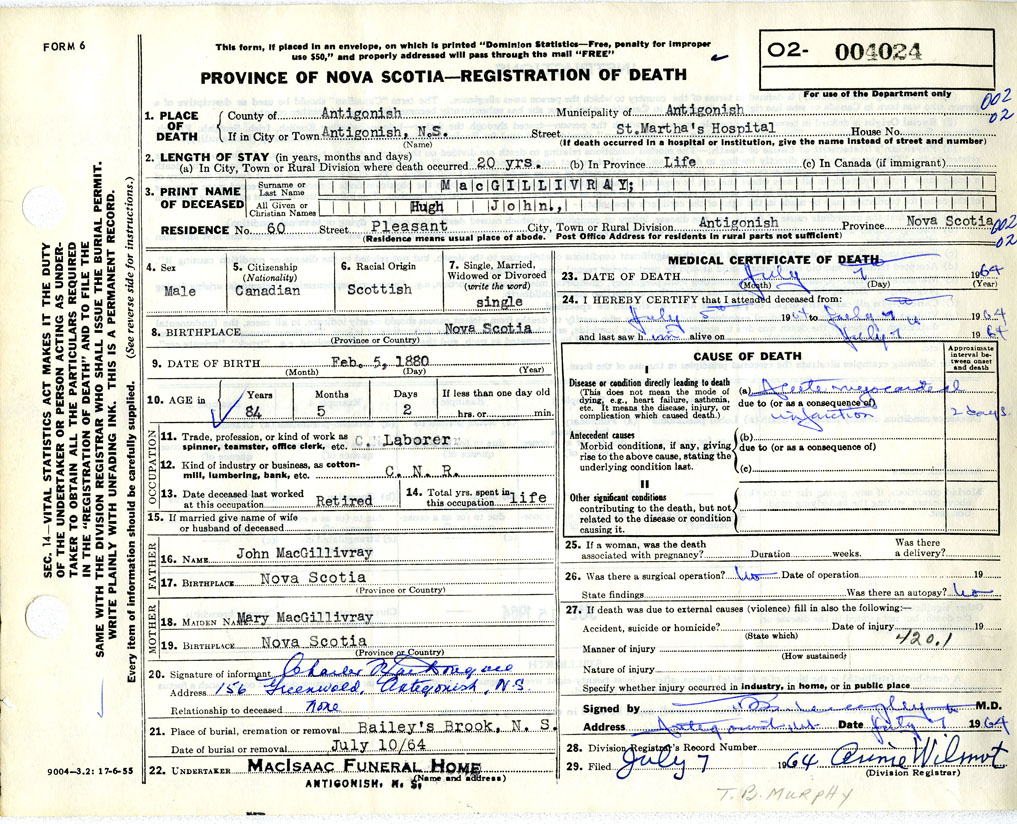 FORM 6
This form, if placed in an envelope, on which is printed "Dominion Statistics—Free, penalty for improper
use $50," and properly addressed will pass through the mail "FREE"
O2- 004024
For use of the Department only
PROVINCE OF NOVA SCOTIA—REGISTRATION OF DEATH
002
02
1. PLACE OF DEATH
County of Antigonish Municipality of Antigonish
If in City or Town Antigonish, N.S. Street St.Martha's Hospital House No.
(Name) (If death occurred in a hospital or institution, give the name instead of street and number)
2. LENGTH OF STAY (in years, months and days)
(a) In City, Town or Rural Division where death occurred 20 yrs. (b) In Province Life (c) In Canada (if immigrant)
3. PRINT NAME OF DECEASED
Surname or Last Name MacGILLIVRAY;
All Given or Christian Names Hugh John.,
RESIDENCE No. 60 Street Pleasant City, Town or Rural Division Antigonish Province Nova Scotia
002
02
(Residence means usual place of abode. Post Office Address for residents in rural parts not sufficient)
4. Sex
Male
5. Citizenship
(Nationality)
Canadian
6. Racial Origin
Scottish
7. Single, Married,
Widowed or Divorced
(write the word)
single
8. BIRTHPLACE Nova Scotia
(Province or Country)
9. DATE OF BIRTH Feb. 5, 1880
(Month) (Day) (Year)
10. AGE in
Years Months Days If less than one day old
84 5 2 hrs. or min.
OCCUPATION
11. Trade, profession, or kind of work as
spinner, teamster, office clerk, etc. Laborer
12. Kind of industry or business, as cotton-
mill, lumbering, bank, etc. C. N. R.
13. Date deceased last worked
at this occupation Retired
14. Total yrs. spent in
this occupation life
15. If married give name of wife
or husband of deceased
FATHER
16. NAME John MacGillivray
17. BIRTHPLACE Nova Scotia
(Province or Country)
MOTHER
18. MAIDEN NAME Mary MacGillivray
19. BIRTHPLACE Nova Scotia
(Province or Country)
20. Signature of informant Charles
Address 156 Antigonish, N.S.
Relationship to deceased none
21. Place of burial, cremation or removal Bailey's Brook, N. S.
Date of burial or removal July 10/64
22. UNDERTAKER MACISAAC FUNERAL HOME
(Name and address)
ANTIGONISH, N. S.
MEDICAL CERTIFICATE OF DEATH
23. DATE OF DEATH July 7th 1964
(Month) (Day) (Year)
24. I HEREBY CERTIFY that I attended deceased from:
July 5th 1964 to July 7th 1964
and last saw him alive on July 7th 1964
CAUSE OF DEATH
Approximate
interval be-
tween onset
and death
I
Disease or condition directly leading to death
(This does not mean the mode of
dying, e.g., heart failure, asthenia,
etc. It means the disease, injury, or
complication which caused death.)
(a) Acute myocardial
due to (or as a consequence of)
infarction 2 days
Antecedent causes
Morbid conditions, if any, giving
rise to the above cause, stating the
underlying condition last.
(b)
due to (or as a consequence of)
(c)
II
Other significant conditions
contributing to the death, but not
related to the disease or condition
causing it.
25. If a woman, was the death
associated with pregnancy? Duration weeks. Was there
a delivery?
26. Was there a surgical operation? No Date of operation 19
State findings Was there an autopsy? No
27. If death was due to external causes (violence) fill in also the following:—
Accident, suicide or homicide? Date of injury 19
(State which)
420.1
Manner of injury
(How sustained)
Nature of injury
Specify whether injury occurred in industry, in home, or in public place
Signed by M.D.
Address Antigonish Date July 7 1964
28. Division Registrar's Record Number
29. Filed July 7 1964 Annie Wilmot
(Division Registrar)
T. B. MURPHY
SEC. 14—VITAL STATISTICS ACT MAKES IT THE DUTY
OF THE UNDERTAKER OR PERSON ACTING AS UNDER-
TAKER TO OBTAIN ALL THE PARTICULARS REQUIRED
IN THE "REGISTRATION OF DEATH" AND TO FILE THE
SAME WITH THE DIVISION REGISTRAR WHO SHALL ISSUE THE BURIAL PERMIT.
WRITE PLAINLY WITH UNFADING INK. THIS IS A PERMANENT RECORD.
Every item of information should be carefully supplied. (See reverse side for instructions.)
9004—3.2: 17-6-55